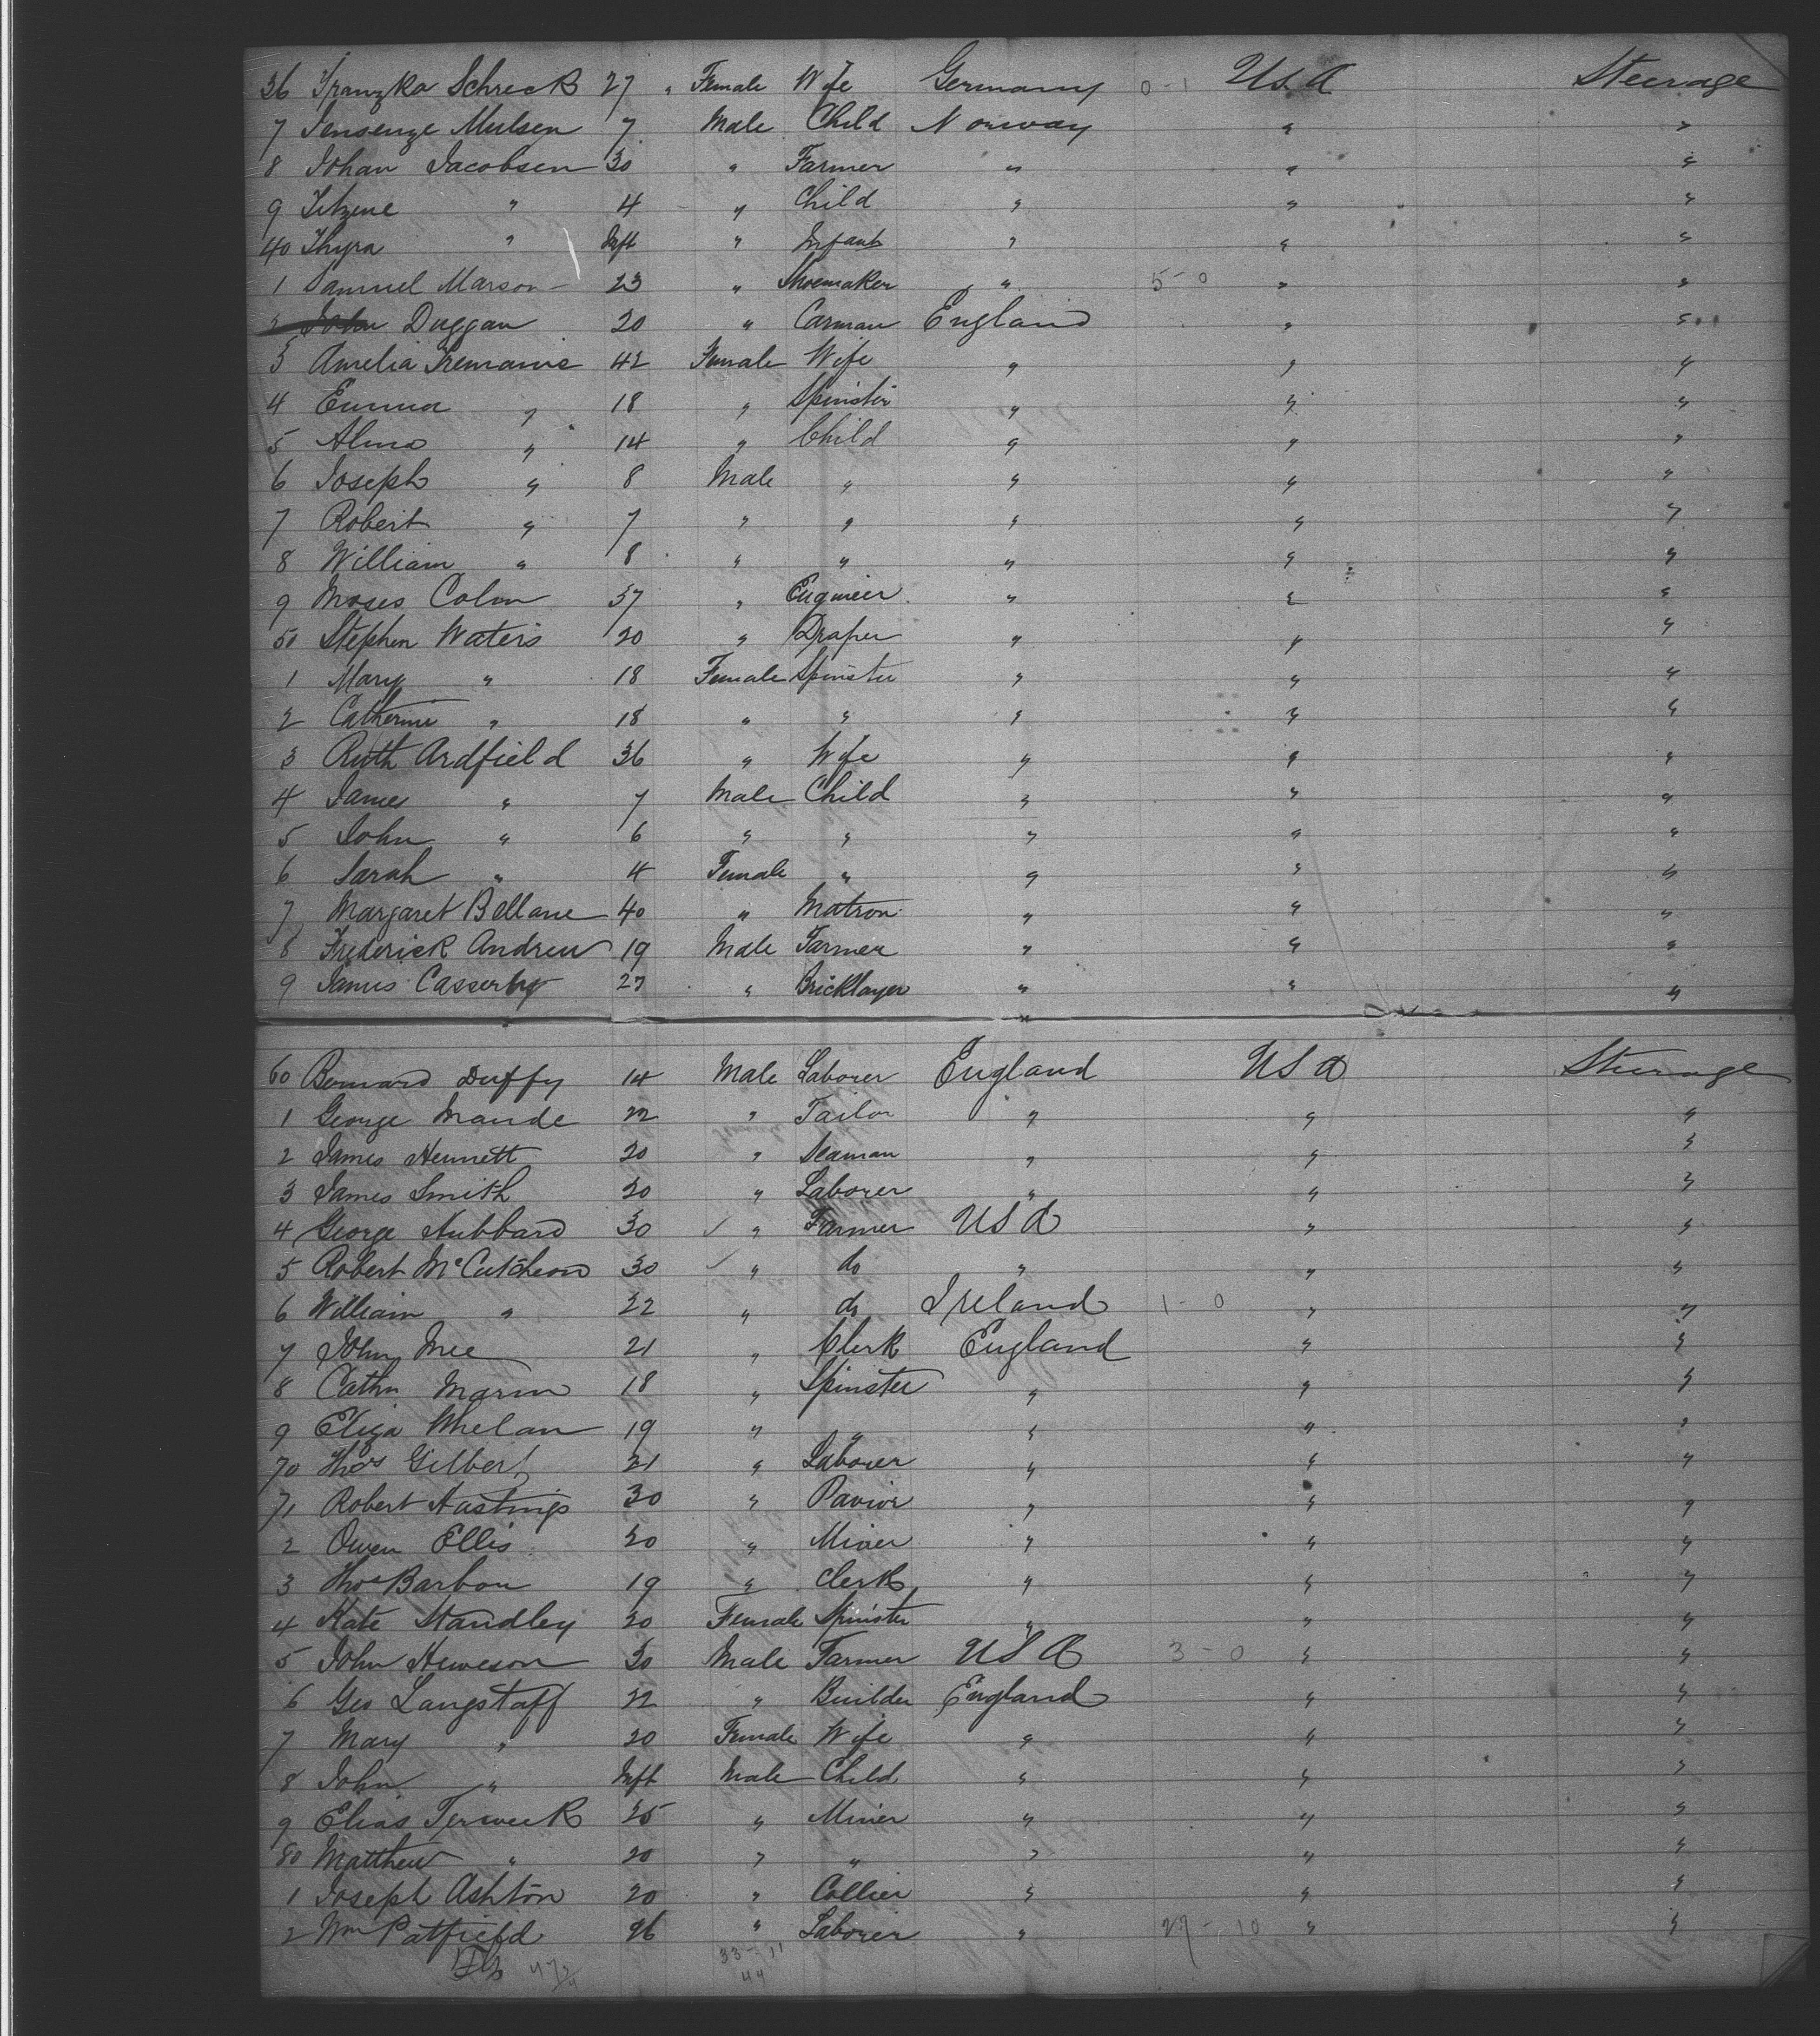 36 Franzka Schreck 27 " Female Wife Germany 0-1 USA Steerage
7 Jensenze Mulsen 7 Male Child Norway " "
8 Johan Jacobsen 30 " Farmer " " "
9 Titzine " 4 " Child " " "
40 Thyra " Inft " Infant " " "
1 Samuel Marson 23 " Shoemaker " 5-0 " "
2 John Duggan 20 " Carman England " "
3 Amelia 42 Female Wife " " "
4 Emma " 18 " Spinster " " "
5 Alma " 14 " Child " " "
6 Joseph " 8 Male " " " "
7 Robert " 7 " " " " "
8 William " 8 " " " " "
9 Moses Colm 37 " Engineer " " "
50 Stephen Waters 20 " Draper " " "
1 Mary " 18 Female Spinster " " "
2 Catherine " 18 " " " " "
3 Ruth Ardfield 36 " Wife " " "
4 James " 7 Male Child " " "
5 John " 6 " " " " "
6 Sarah " 4 Female " " " "
7 Margaret Bellane 40 " Matron " " "
8 Frederick Andrew 19 Male Farmer " " "
9 James Casserly 27 " Bricklayer " " "
60 Bernard Duffy 14 Male Laborer England USA Steerage
1 George Maude 22 " Tailor " " "
2 James Hennett 20 " Seaman " " "
3 James Smith 20 " Laborer " " "
4 George Hubbard 30 " Farmer USA " "
5 Robert McCutcheon 30 " do " " "
6 William " 22 " do Ireland 1-0 " "
7 John Mee 21 " Clerk England " "
8 Cathn Marin 18 " Spinster " " "
9 Eliza Whelan 19 " " " " "
70 Thos Gilbert 21 " Laborer " " "
71 Robert Hastings 30 " Pavior " " "
2 Owen Ellis 20 " Miner " " "
3 Thos Barbon 19 " Clerk " " "
4 Kate Standley 20 Female Spinster " " "
5 John Heweson 30 Male Farmer USA 3-0 " "
6 Geo Langstaff 22 " Builder England " "
7 Mary " 20 Female Wife " " "
8 John " Inft Male Child " " "
9 Elias Terweek 25 " Miner " " "
80 Matthew " 20 " " " " "
1 Joseph Ashton 20 " Collier " " "
2 Wm Patfield 26 " Laborer " 29-10 " "
33-11
44